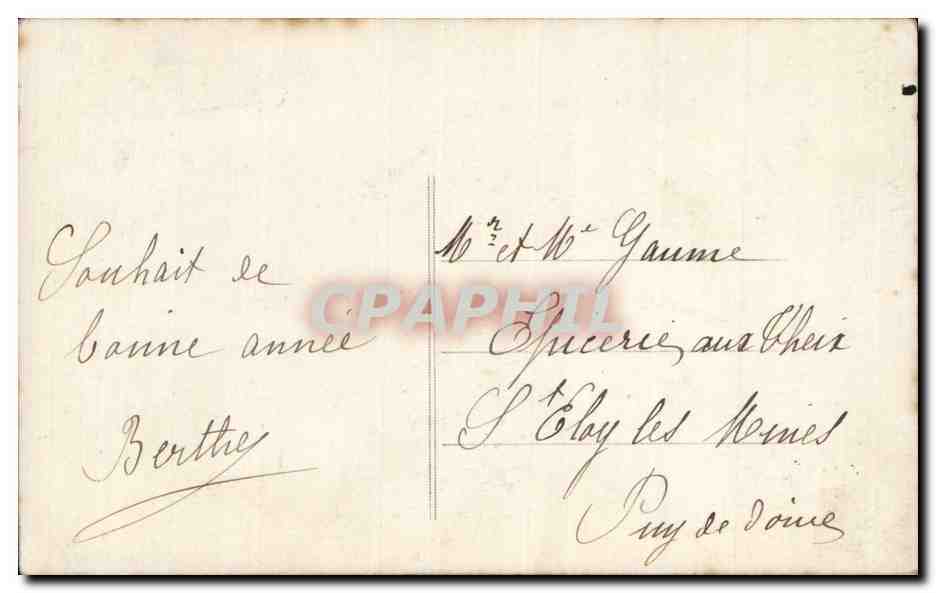 Souhait de
bonne année
Berthe
Mr et Me Gaume
Epicerie aux Theix
St Eloy les Mines
Puy de dome
CPAPHIL